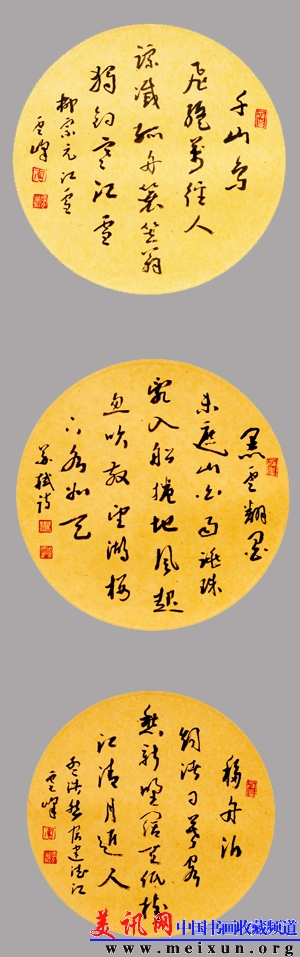 千山鳥
飛絶萬徑人
踪滅孤舟蓑笠翁
獨釣寒江雪
柳宗元江雪
雲峰
黑雲翻墨
未遮山白雨跳珠
亂入船捲地風起
忽吹散望湖樓
下水如天
蘇軾詩
移舟泊
烟渚日暮客
愁新野曠天低樹
江清月近人
孟浩然宿建德江
雲峰
美讯网 中国书画收藏频道
www.meixun.org